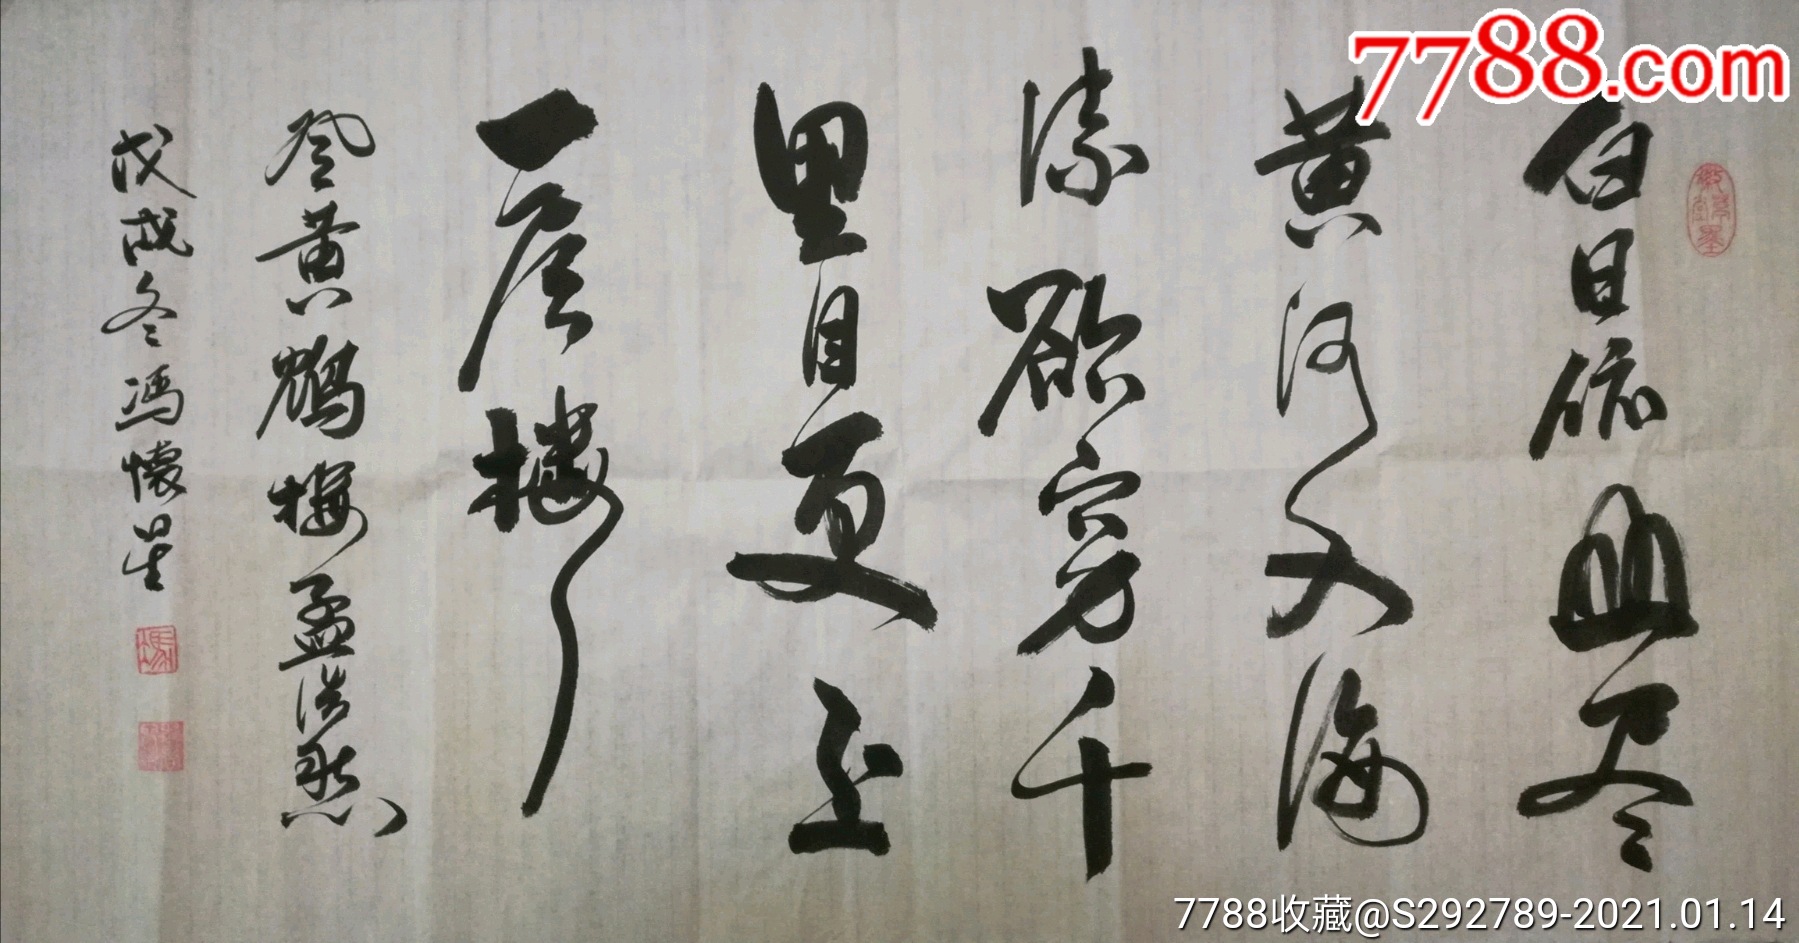 7788.com
白日依山尽
黄河入海
流欲穷千
里目更上
一层楼
登黄鹤楼孟浩然
戊戌冬冯懷星
7788收藏@S292789-2021.01.14